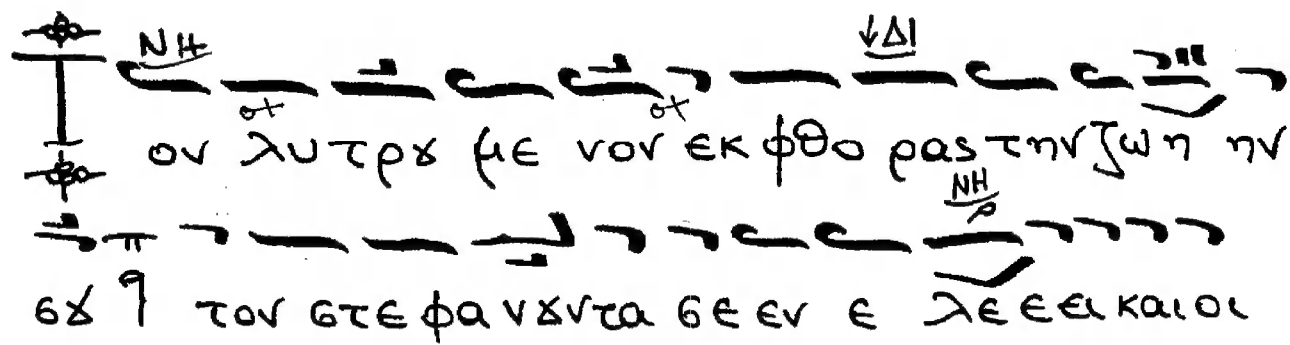 ΝΗ ↓ΔΙ
Τον λυτρȣ με νον εκ φθο ρας την ζωη ην
ΝΗ
σȣ τον στε φα νȣντα σε εν ε λε ε ει και οι